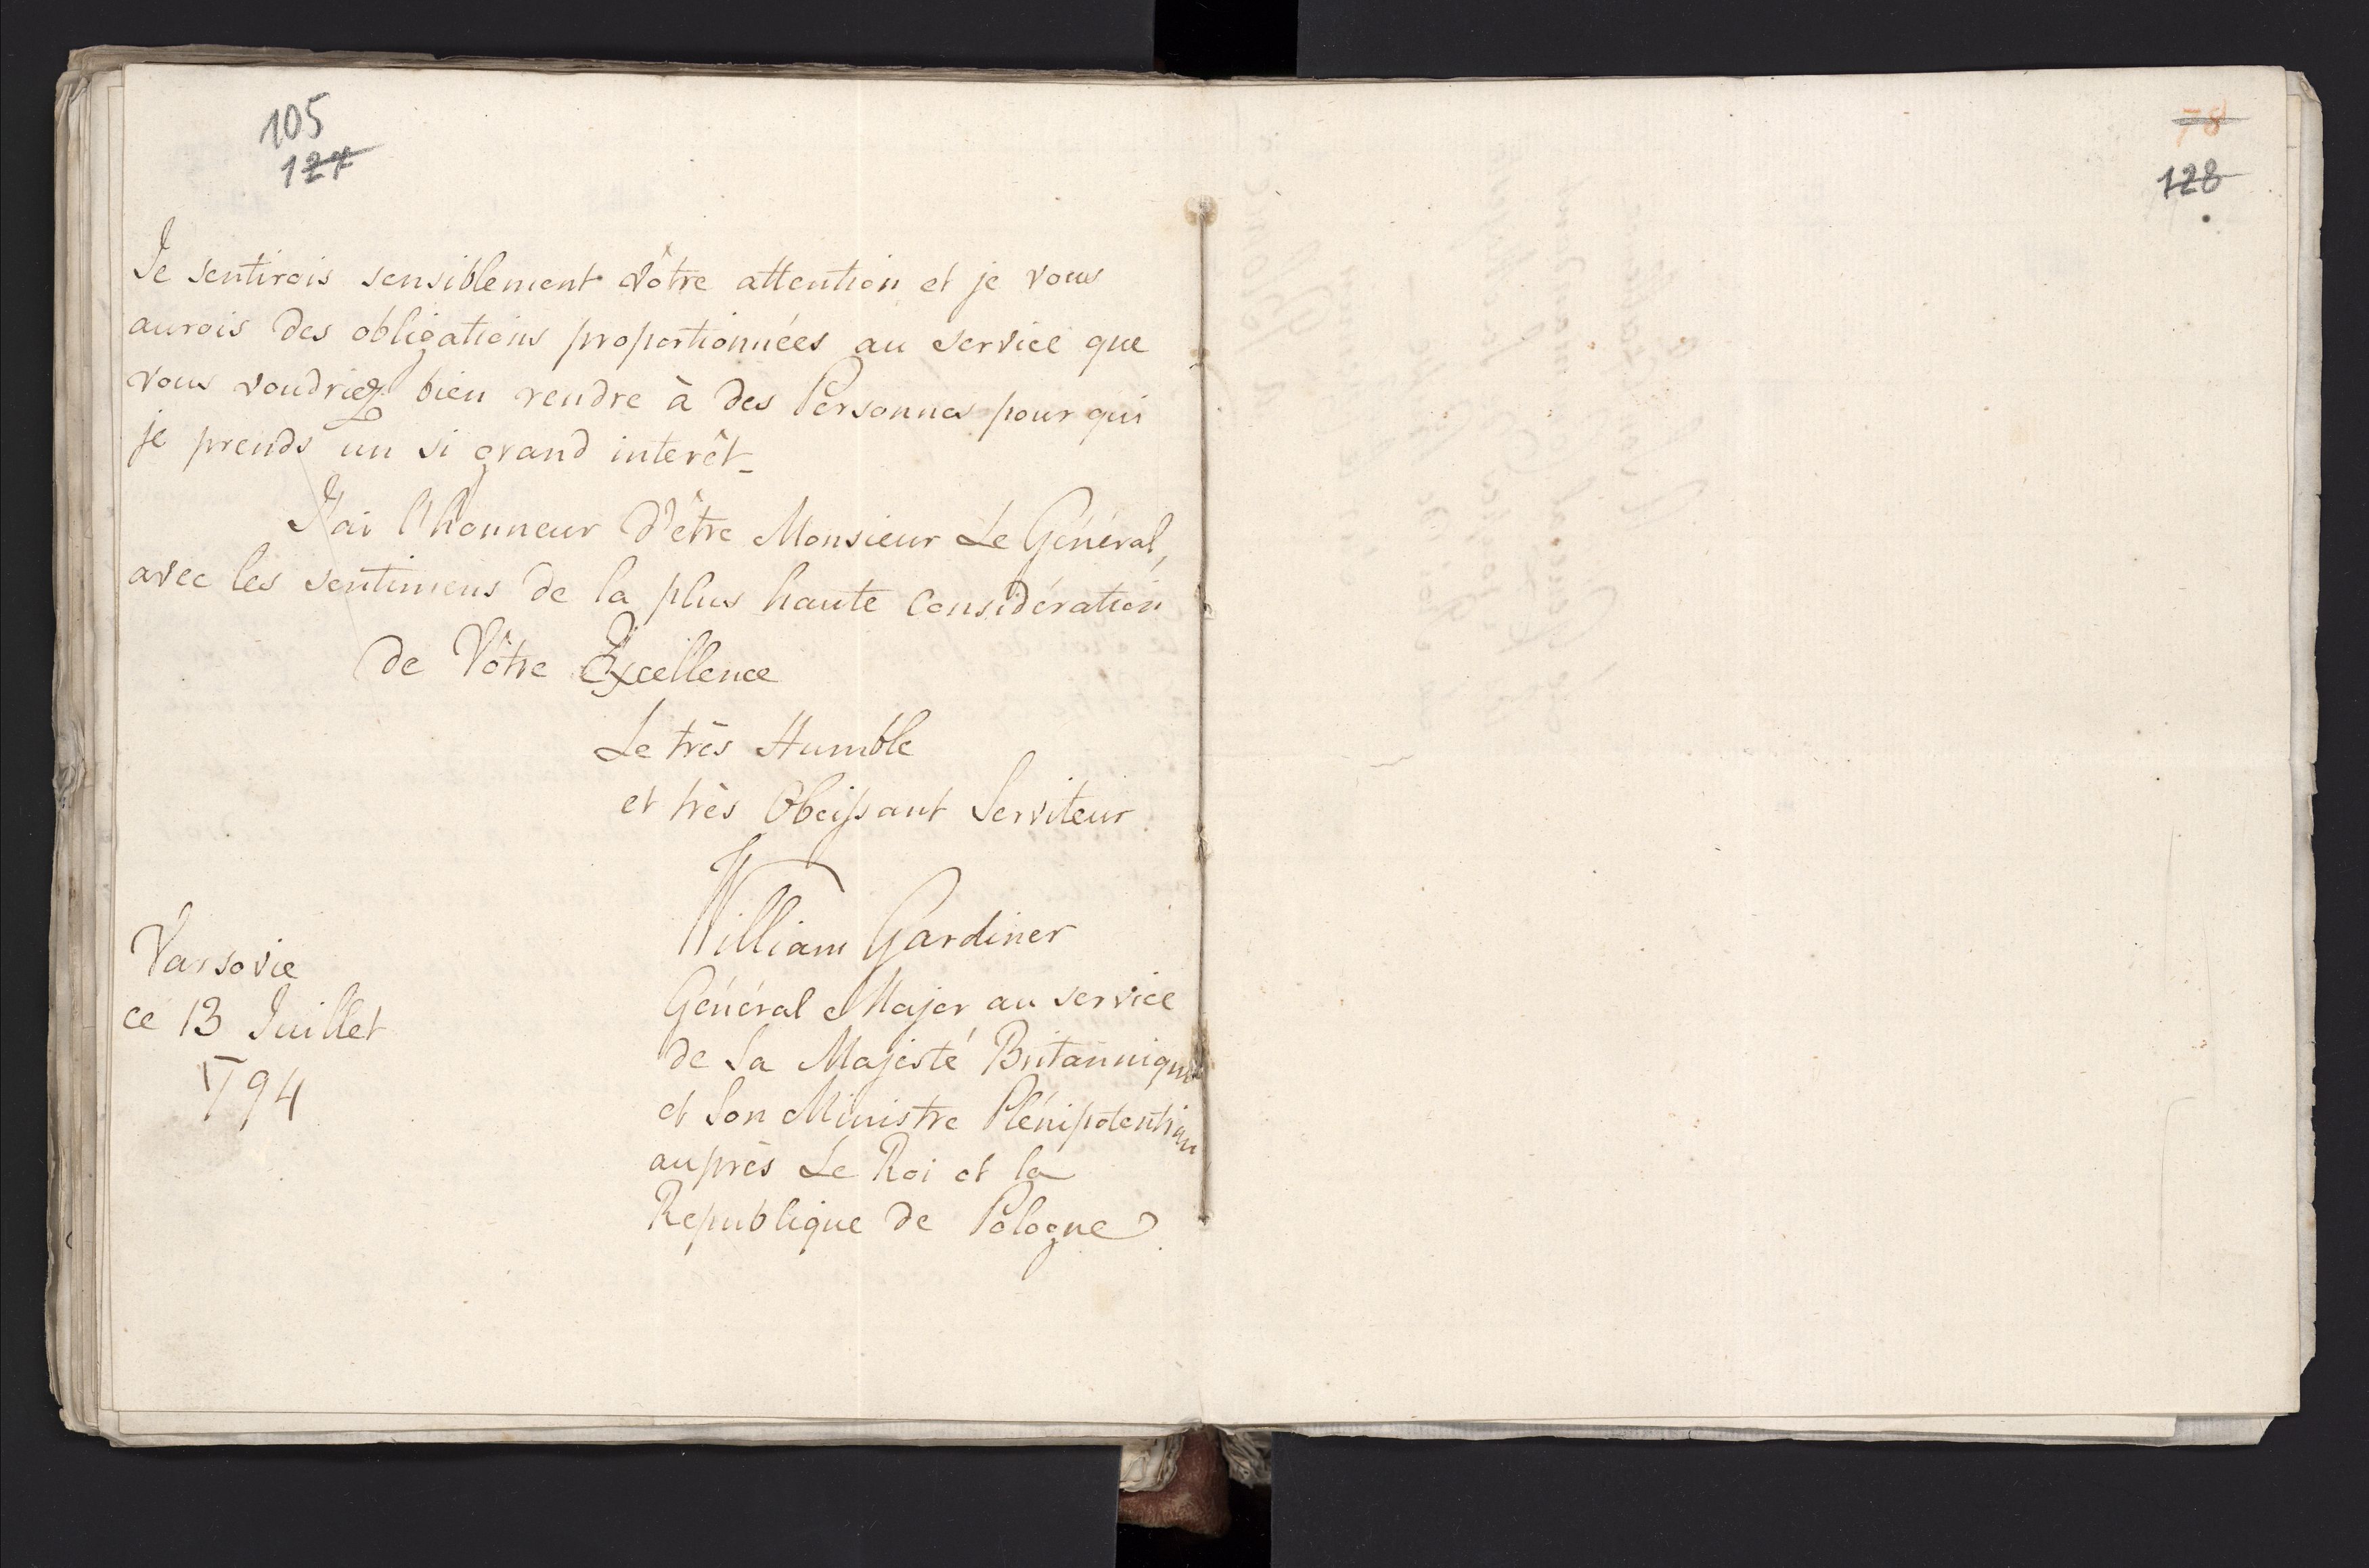 105
127
Je sentirois sensiblement vôtre attention et je vous
aurois des obligations proportionnées au service que
vous voudriez bien rendre à des Personnes pour qui
je prends un si grand interêt_
J'ai l'honneur d'être Monsieur Le Général,
avec les sentimens de la plus haute considération
de Vôtre Excellence
Le très Humble
et très Obeissant Serviteur
William Gardiner
Général Major au service
de Sa Majesté Britannique
et Son Ministre Plénipotentiaire
auprès Le Roi et la
Republique de Pologne
Varsovie
ce 13 Juillet
1794
78
128